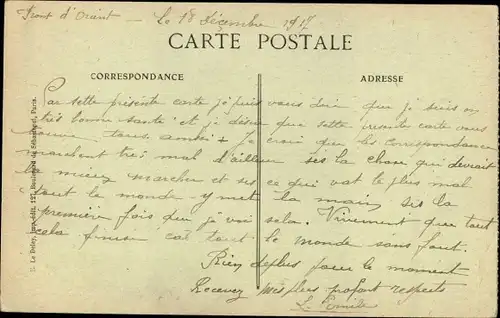 Front d'Orient - Le 18 décembre 1917
CARTE POSTALE
CORRESPONDANCE
ADRESSE
Par sette présente carte je puis vous dire que je suis en
très bonne santé et je désire que sette première carte vous
trouve tous ambi + Je crois que les correspondances
marchent très mal d'ailleur ses la chose qui devrait
la mieux marcher et ses ce qui vat le plus mal
tout le monde y met la main sis la
première fois que je voi sela. Vivement que tout
sela finisse cat tout le monde sans faut.
Rien deplus pour le moment
Recevez mes plus profont respects
L. Emile
E. Le Deley, imp.-édit. 127, Boulevard de Sébastopol, Paris.